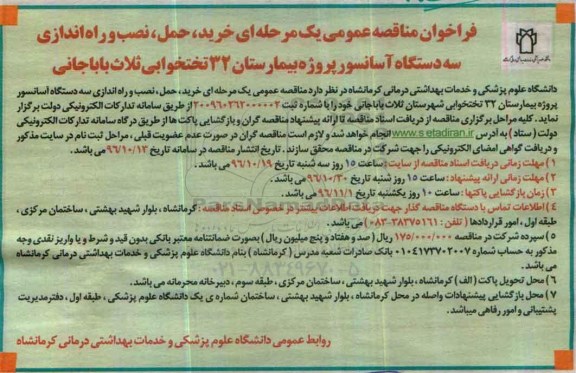 فراخوان مناقصه عمومی یک مرحله ای خرید، حمل، نصب و راه اندازی
سه دستگاه آسانسور پروژه بیمارستان ۳۲ تختخوابی ثلاث باباجانی
دانشگاه علوم پزشکی و خدمات بهداشتی درمانی کرمانشاه در نظر دارد مناقصه عمومی یک مرحله ای خرید، حمل، نصب و راه اندازی سه دستگاه آسانسور
پروژه بیمارستان ۳۲ تختخوابی شهرستان ثلاث باباجانی خود را با شماره ثبت ۲۰۰۹۶۰۲۶۲۰۰۰۰۰۲ از طریق سامانه تدارکات الکترونیکی دولت برگزار
نماید. کلیه مراحل برگزاری مناقصه از دریافت اسناد مناقصه تا ارائه پیشنهاد مناقصه گران و بازگشایی پاکت ها از طریق درگاه سامانه تدارکات الکترونیکی
دولت (ستاد) به آدرس www.setadiran.ir انجام خواهد شد و لازم است مناقصه گران در صورت عدم عضویت قبلی، مراحل ثبت نام در سایت مذکور
و دریافت گواهی امضای الکترونیکی را جهت شرکت در مناقصه محقق سازند. تاریخ انتشار مناقصه در سامانه تاریخ ۹۶/۱۰/۱۳ می باشد.
۱) مهلت زمانی دریافت اسناد مناقصه از سایت: ساعت ۱۵ روز سه شنبه تاریخ ۹۶/۱۰/۱۹ می باشد.
۲) مهلت زمانی ارائه پیشنهاد: ساعت ۱۵ روز شنبه تاریخ ۹۶/۱۰/۳۰ می باشد.
۳) زمان بازگشایی پاکتها: ساعت ۱۰ روز یکشنبه تاریخ ۹۶/۱۱/۱ می باشد.
۴) اطلاعات تماس با دستگاه مناقصه گذار جهت دریافت اطلاعات بیشتر در خصوص اسناد مناقصه: کرمانشاه، بلوار شهید بهشتی، ساختمان مرکزی،
طبقه اول، امور قراردادها (تلفن: ۳۸۳۷۵۱۶۱-۰۸۳) می باشد.
۵) سپرده شرکت در مناقصه ۱۷۵/۰۰۰/۰۰۰ ریال (صد و هفتاد و پنج میلیون ریال) بصورت ضمانتنامه معتبر بانکی بدون قید و شرط و یا واریز نقدی وجه
مذکور به حساب شماره ۰۱۰۴۱۷۳۷۰۲۰۰۷ بانک صادرات شعبه مدرس (کرمانشاه) بنام دانشگاه علوم پزشکی و خدمات بهداشتی درمانی کرمانشاه
می باشد.
۶) محل تحویل پاکت (الف) کرمانشاه، بلوار شهید بهشتی، ساختمان مرکزی، طبقه سوم، دبیرخانه محرمانه می باشد.
۷) محل بازگشایی پیشنهادات واصله در محل کرمانشاه، بلوار شهید بهشتی، ساختمان شماره ی یک دانشگاه علوم پزشکی، طبقه اول، دفتر مدیریت
پشتیبانی و امور رفاهی میباشد.
روابط عمومی دانشگاه علوم پزشکی و خدمات بهداشتی درمانی کرمانشاه